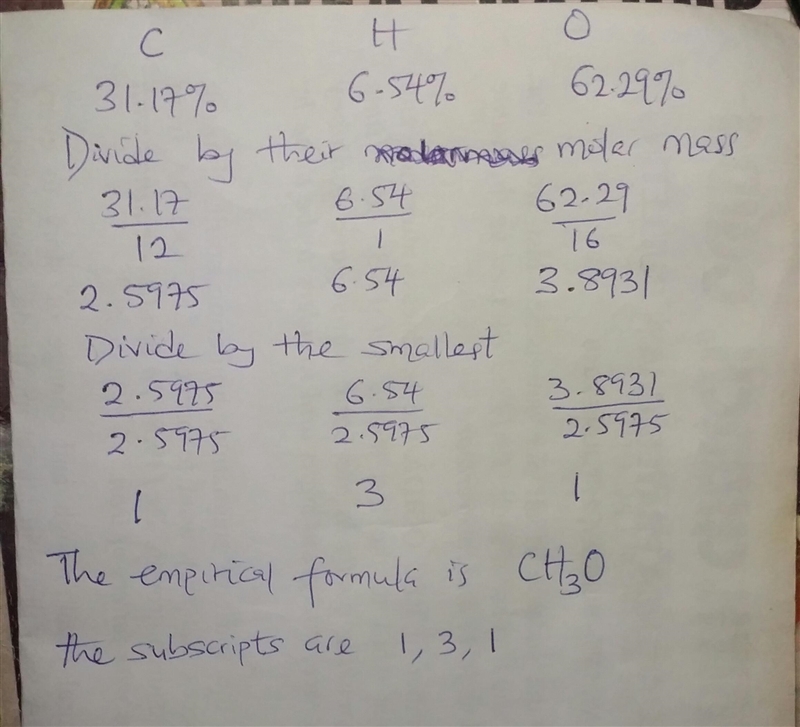 C H O
31.17% 6.54% 62.29%
Divide by their molar mass
31.17 6.54 62.29
12 1 16
2.5975 6.54 3.8931
Divide by the smallest
2.5975 6.54 3.8931
2.5975 2.5975 2.5975
1 3 1
The empirical formula is CH₃O
the subscripts are 1, 3, 1